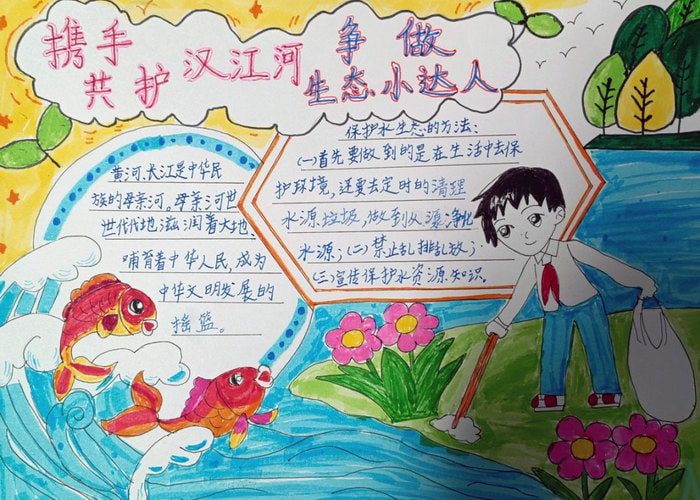 携手
共护
汉江河
争做
生态小达人
黄河、长江是中华民
族的母亲河。母亲河世
世代代地滋润着大地、
哺育着中华人民,成为
中华文明发展的
摇篮。
保护水生态的方法:
(一)首先要做到的是在生活中去保
护环境,还要去定时的清理
水源垃圾,做到从源净化
水源;(二)禁止乱排乱放;
(三)宣传保护水资源知识